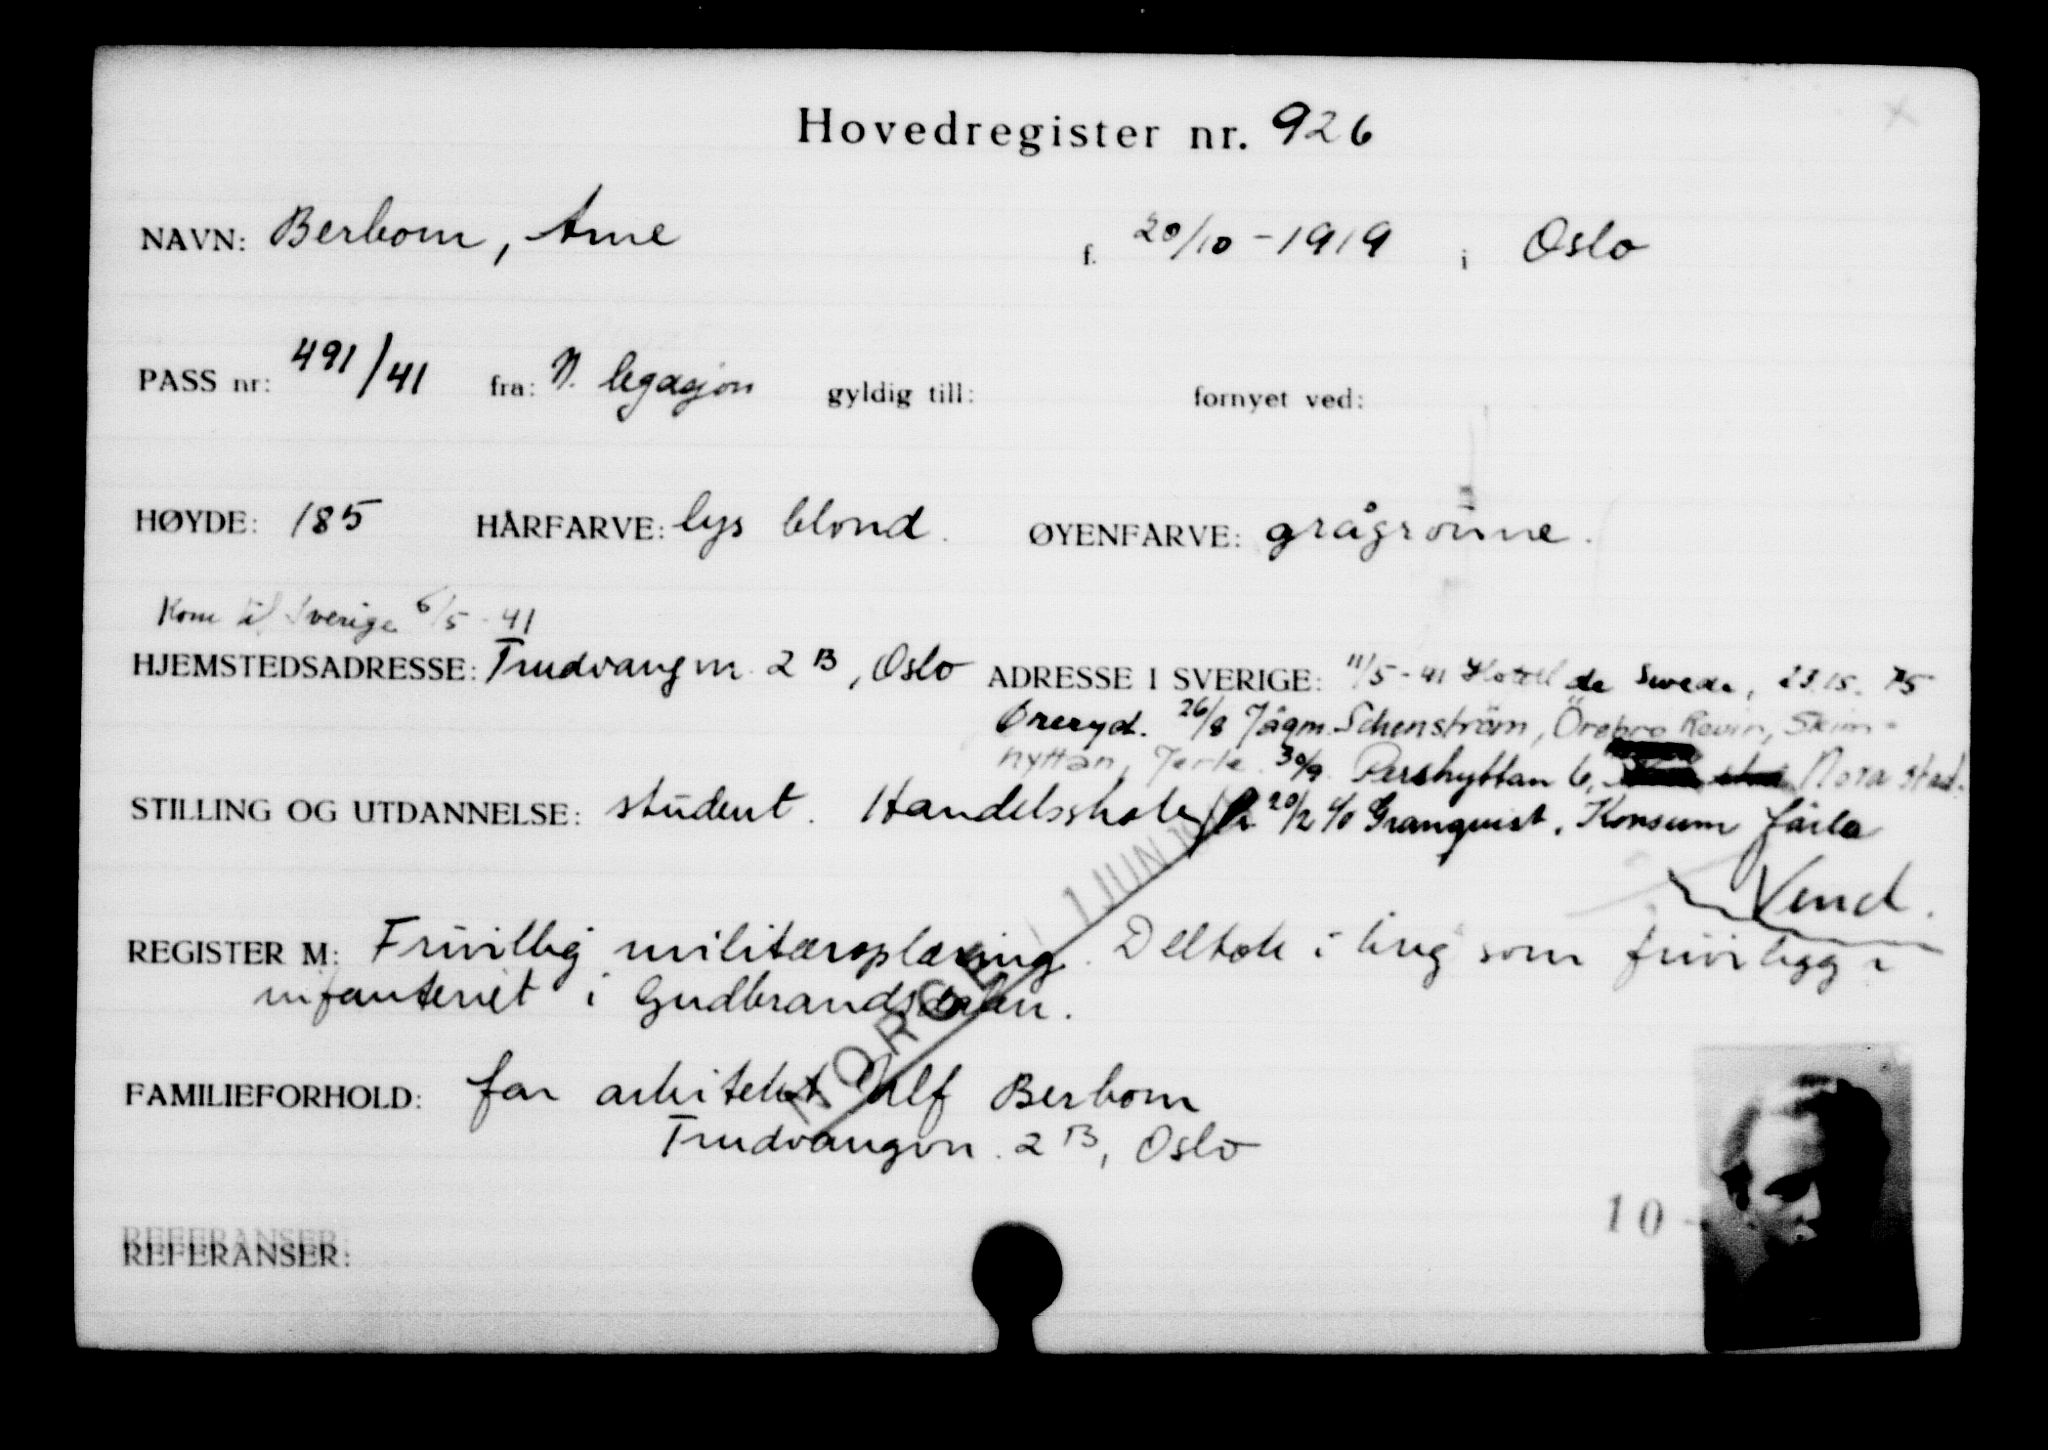 Hovedregister nr. 926
NAVN: Berbom, Arne f. 20/10-1919 i Oslo
PASS nr: 491/41 fra: N. legasjon gyldig till: fornyet ved:
HØYDE: 185 HÅRFARVE: lys blond. ØYENFARVE: grågrønne.
Kom til Sverige 6/5-41
HJEMSTEDSADRESSE: Trudvangvn. 2 B, Oslo ADRESSE I SVERIGE: 11/5-41 Hotell de Swede,
Öreryd. 26/8 Jägm. Schenström, Örebro Revir, Skrim-
hyttan, Jerle. 30/9 Pershyttan 6, Nora stad.
STILLING OG UTDANNELSE: student. Handelsskole 20/2 c/o Granquist, Konsum Järla
1 JUN 19
Vend.
REGISTER M: Frivillig militæroplæring. Deltok i krig som frivillig i
infanteriet i Gudbrandsdalen.
NORGE
FAMILIEFORHOLD: far arkitekt Ulf Berbom
Trudvangvn. 2 B, Oslo
10-
REFERANSER: